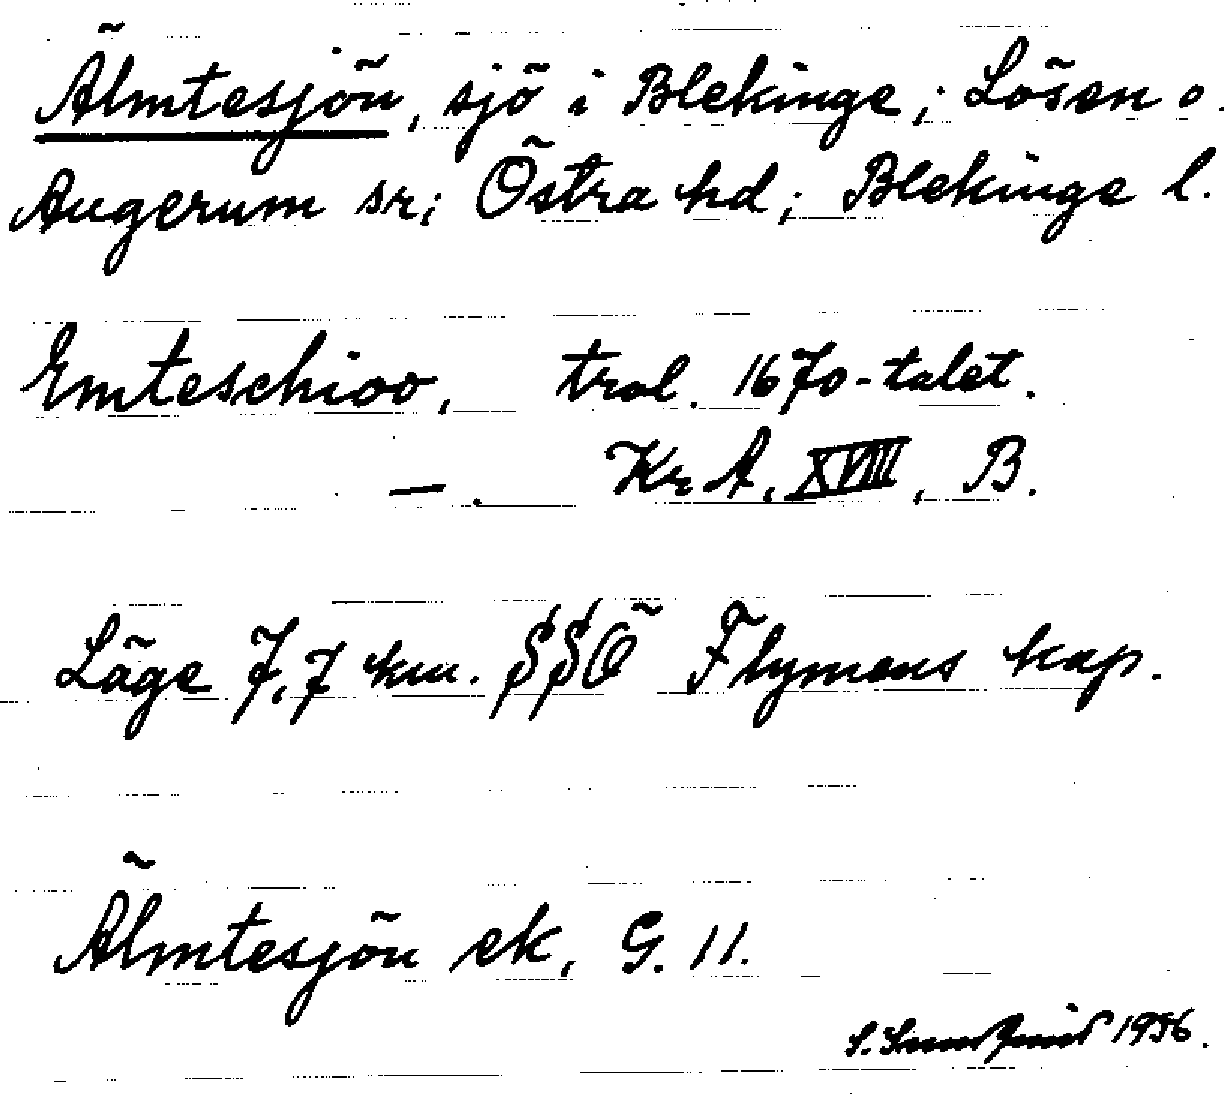 Älmtesjön, sjö i Blekinge; Lösen o.
Augerum sr; Östra hd; Blekinge l.
Emteschioo, trol. 1670-talet.
—. KrA, XVIII, B.
Läge 7,7 km. SSÖ Flymens kap.
Älmtesjön ek, G. 11.
S. 1956.